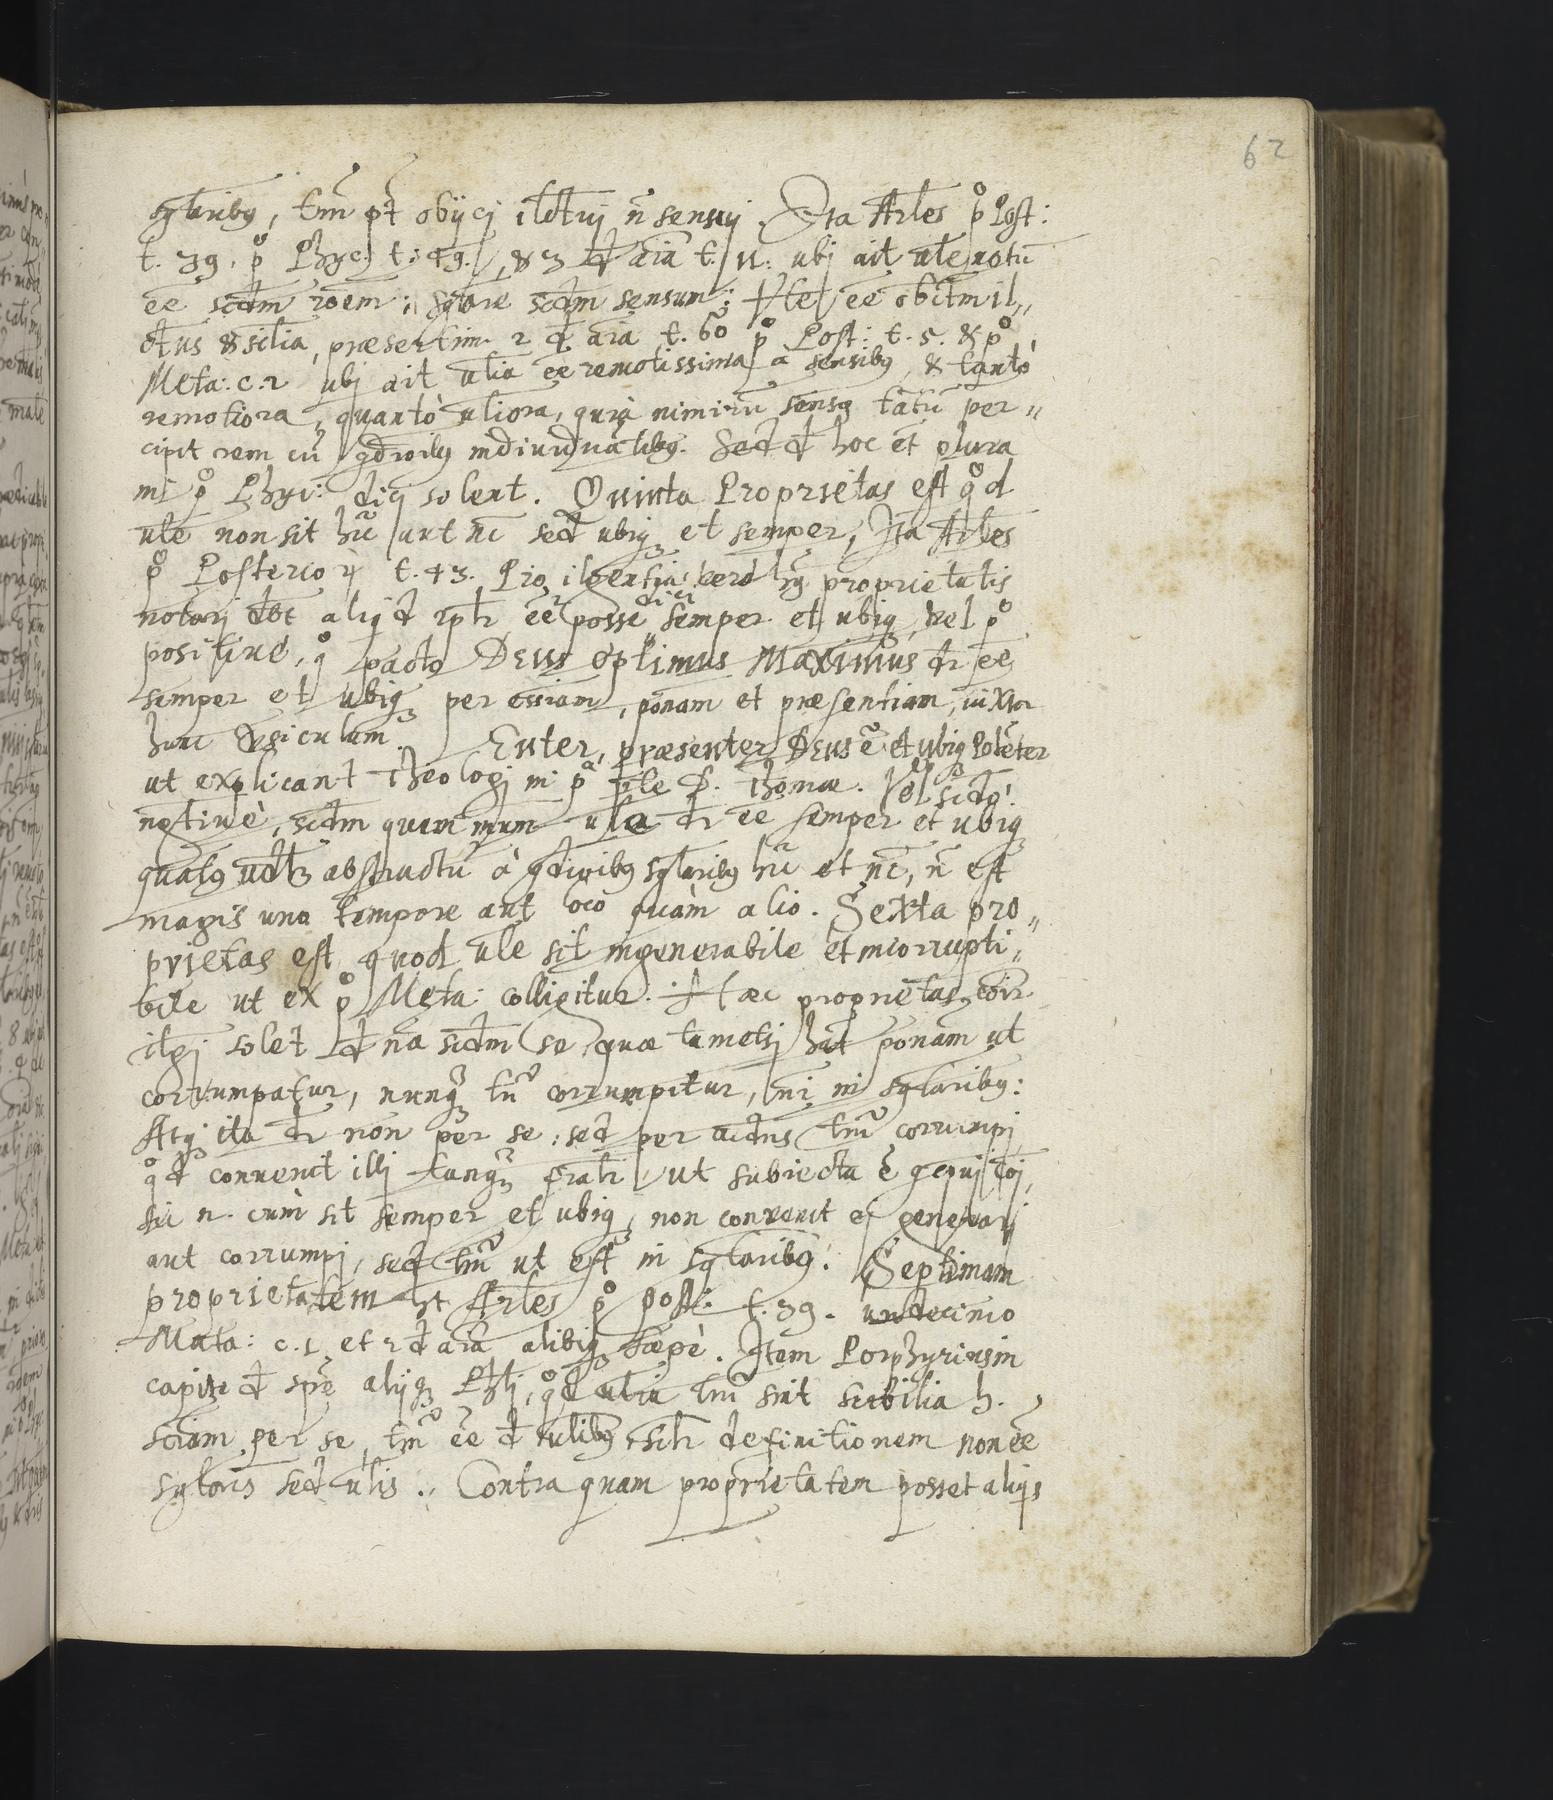 62
sglaribus, tm̃ pt̃ obijcj ilctuj ñ sensuj. Ita Arles pº Post:
t. 39. pº Phyc. t: 49. & 3 d aĩa t. 11. ubj ait ule notũ
ee scdm roem; sglare scdm sensum; Vle ee obctm il„
ctus & scilia, præsertim 2 d aĩa t. 60 pº Post: t. 5. & pº
Meta: c. 2 ubj ait ulia ee remotissima à sensibus, & tantò
remotiora, quantò uliora, quia nimirũ sensus tãtũ per„
cipit rem cũ gdroibus indiuidualibus. Sed d hoc et plura
in pº Phyc: dicj solent. Quinta Proprietas est qºd
ule non sit hĩc aut nc̃ sed ubiq et semper, Ita Arles
pº Posterio ij t. 43. Pro ilgentia verò hus proprietatis
notarj dbt aliqd dplr ee posse dici semper et ubiq, vel pº
positiuè, qº pacto Deus Optimus Maximus dr ee
semper et ubiq per essiam, ponam et præsentiam, iuxta
hunc versiculum. Enter, præsenter Deus ẽ et ubiq Potẽter
ut explicant Theologj in pª ple D. Thomæ. Vel scdò
negatiuè, scdm quem mum ula dr ee semper et ubiq
quatus udlz abstractũ à gdroibus sglaribus hĩc et nc̃, ñ est
magis uno tempore aut loco quàm alio. Sexta pro„
prietas est quod ule sit ingenerabile et incorrupti„
bile ut ex pº Meta: colligitur. Hæc proprietas coir
ilgj solet d nã scdm se, quæ tametsj hat ponam ut
corrumpatur, nunq tñ corrumpitur, ni in sglaribus:
Atq ita dr non per se, sed per acdns tm̃ corrumpj
qºd conuenit illj tanq pralr ut subiecta ẽ gcpuj coj,
sic n. cum sit semper et ubiq, non conuenit ej generarj
aut corrumpj, sed tm̃ ut est in sglaribus. Septimam
proprietatem ht Arles pº post: t. 39. undecimo
Meta: c. 1. et 2 d aĩa alibiq sæpè. Item Porphyrius in
capite d spe alijq Phlj, qºd ulia tm̃ sint scibilia h.
sciam per se, tm̃ ee d ulibus, sclr definitionem non ee
sglaris sed ulis. Contra quam proprietatem posset aliqis